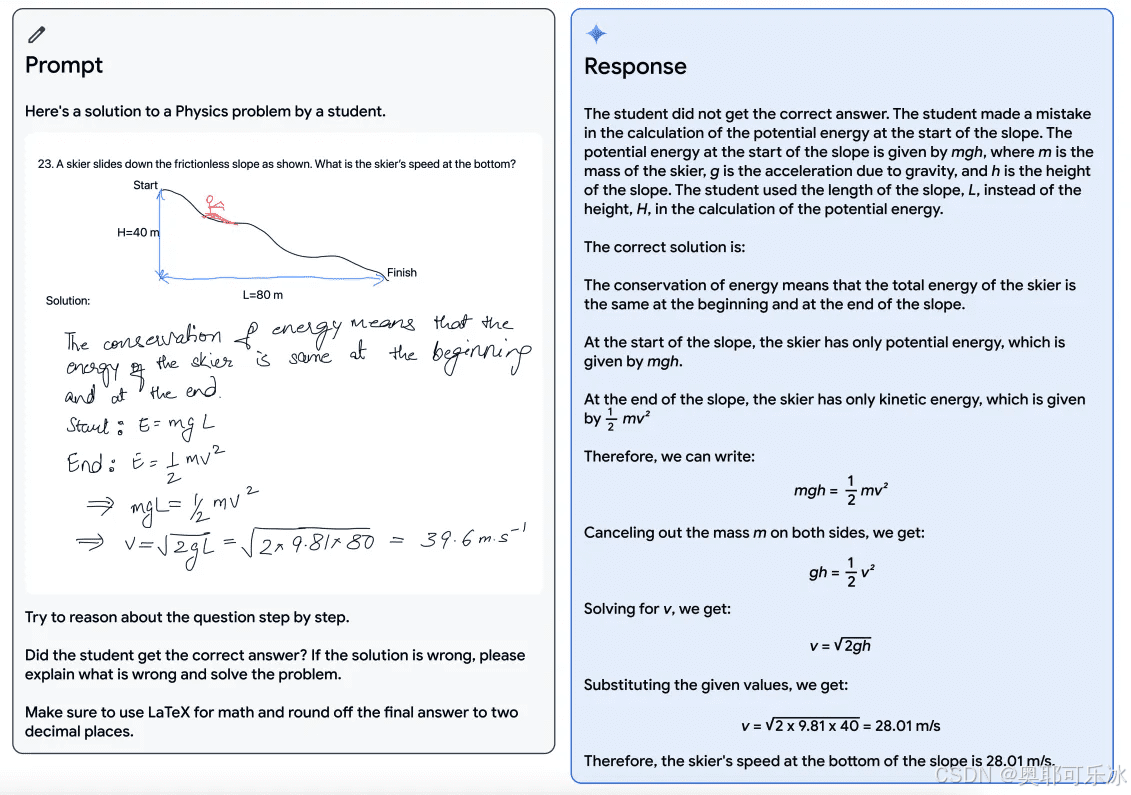 Prompt
Here's a solution to a Physics problem by a student.
23. A skier slides down the frictionless slope as shown. What is the skier's speed at the bottom?
Start
H=40 m
Finish
L=80 m
Solution:
The conservation of energy means that the
energy of the skier is same at the beginning
and at the end.
Start: E = mgL
End: E = 1/2 mv²
⇒ mgL = 1/2 mv²
⇒ v = √2gL = √2×9.81×80 = 39.6 m.s⁻¹
Try to reason about the question step by step.
Did the student get the correct answer? If the solution is wrong, please
explain what is wrong and solve the problem.
Make sure to use LaTeX for math and round off the final answer to two
decimal places.
Response
The student did not get the correct answer. The student made a mistake
in the calculation of the potential energy at the start of the slope. The
potential energy at the start of the slope is given by mgh, where m is the
mass of the skier, g is the acceleration due to gravity, and h is the height
of the slope. The student used the length of the slope, L, instead of the
height, H, in the calculation of the potential energy.
The correct solution is:
The conservation of energy means that the total energy of the skier is
the same at the beginning and at the end of the slope.
At the start of the slope, the skier has only potential energy, which is
given by mgh.
At the end of the slope, the skier has only kinetic energy, which is given
by 1/2 mv²
Therefore, we can write:
mgh = 1/2 mv²
Canceling out the mass m on both sides, we get:
gh = 1/2 v²
Solving for v, we get:
v = √2gh
Substituting the given values, we get:
v = √2 x 9.81 x 40 = 28.01 m/s
Therefore, the skier's speed at the bottom of the slope is 28.01 m/s.
CSDN @奥耶可乐冰